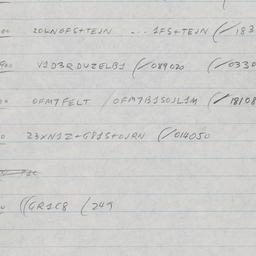 00 20LNOFS+TEJN ... 1FS+TEJN (/183
900 V1D3RDVZELB1 (/089020 (/0330
00 OFM7FELT / OFM7B1SOJL1M (/18108
0 23XN1Z+G81S+OJRN (/014050
((GR1C8 (249